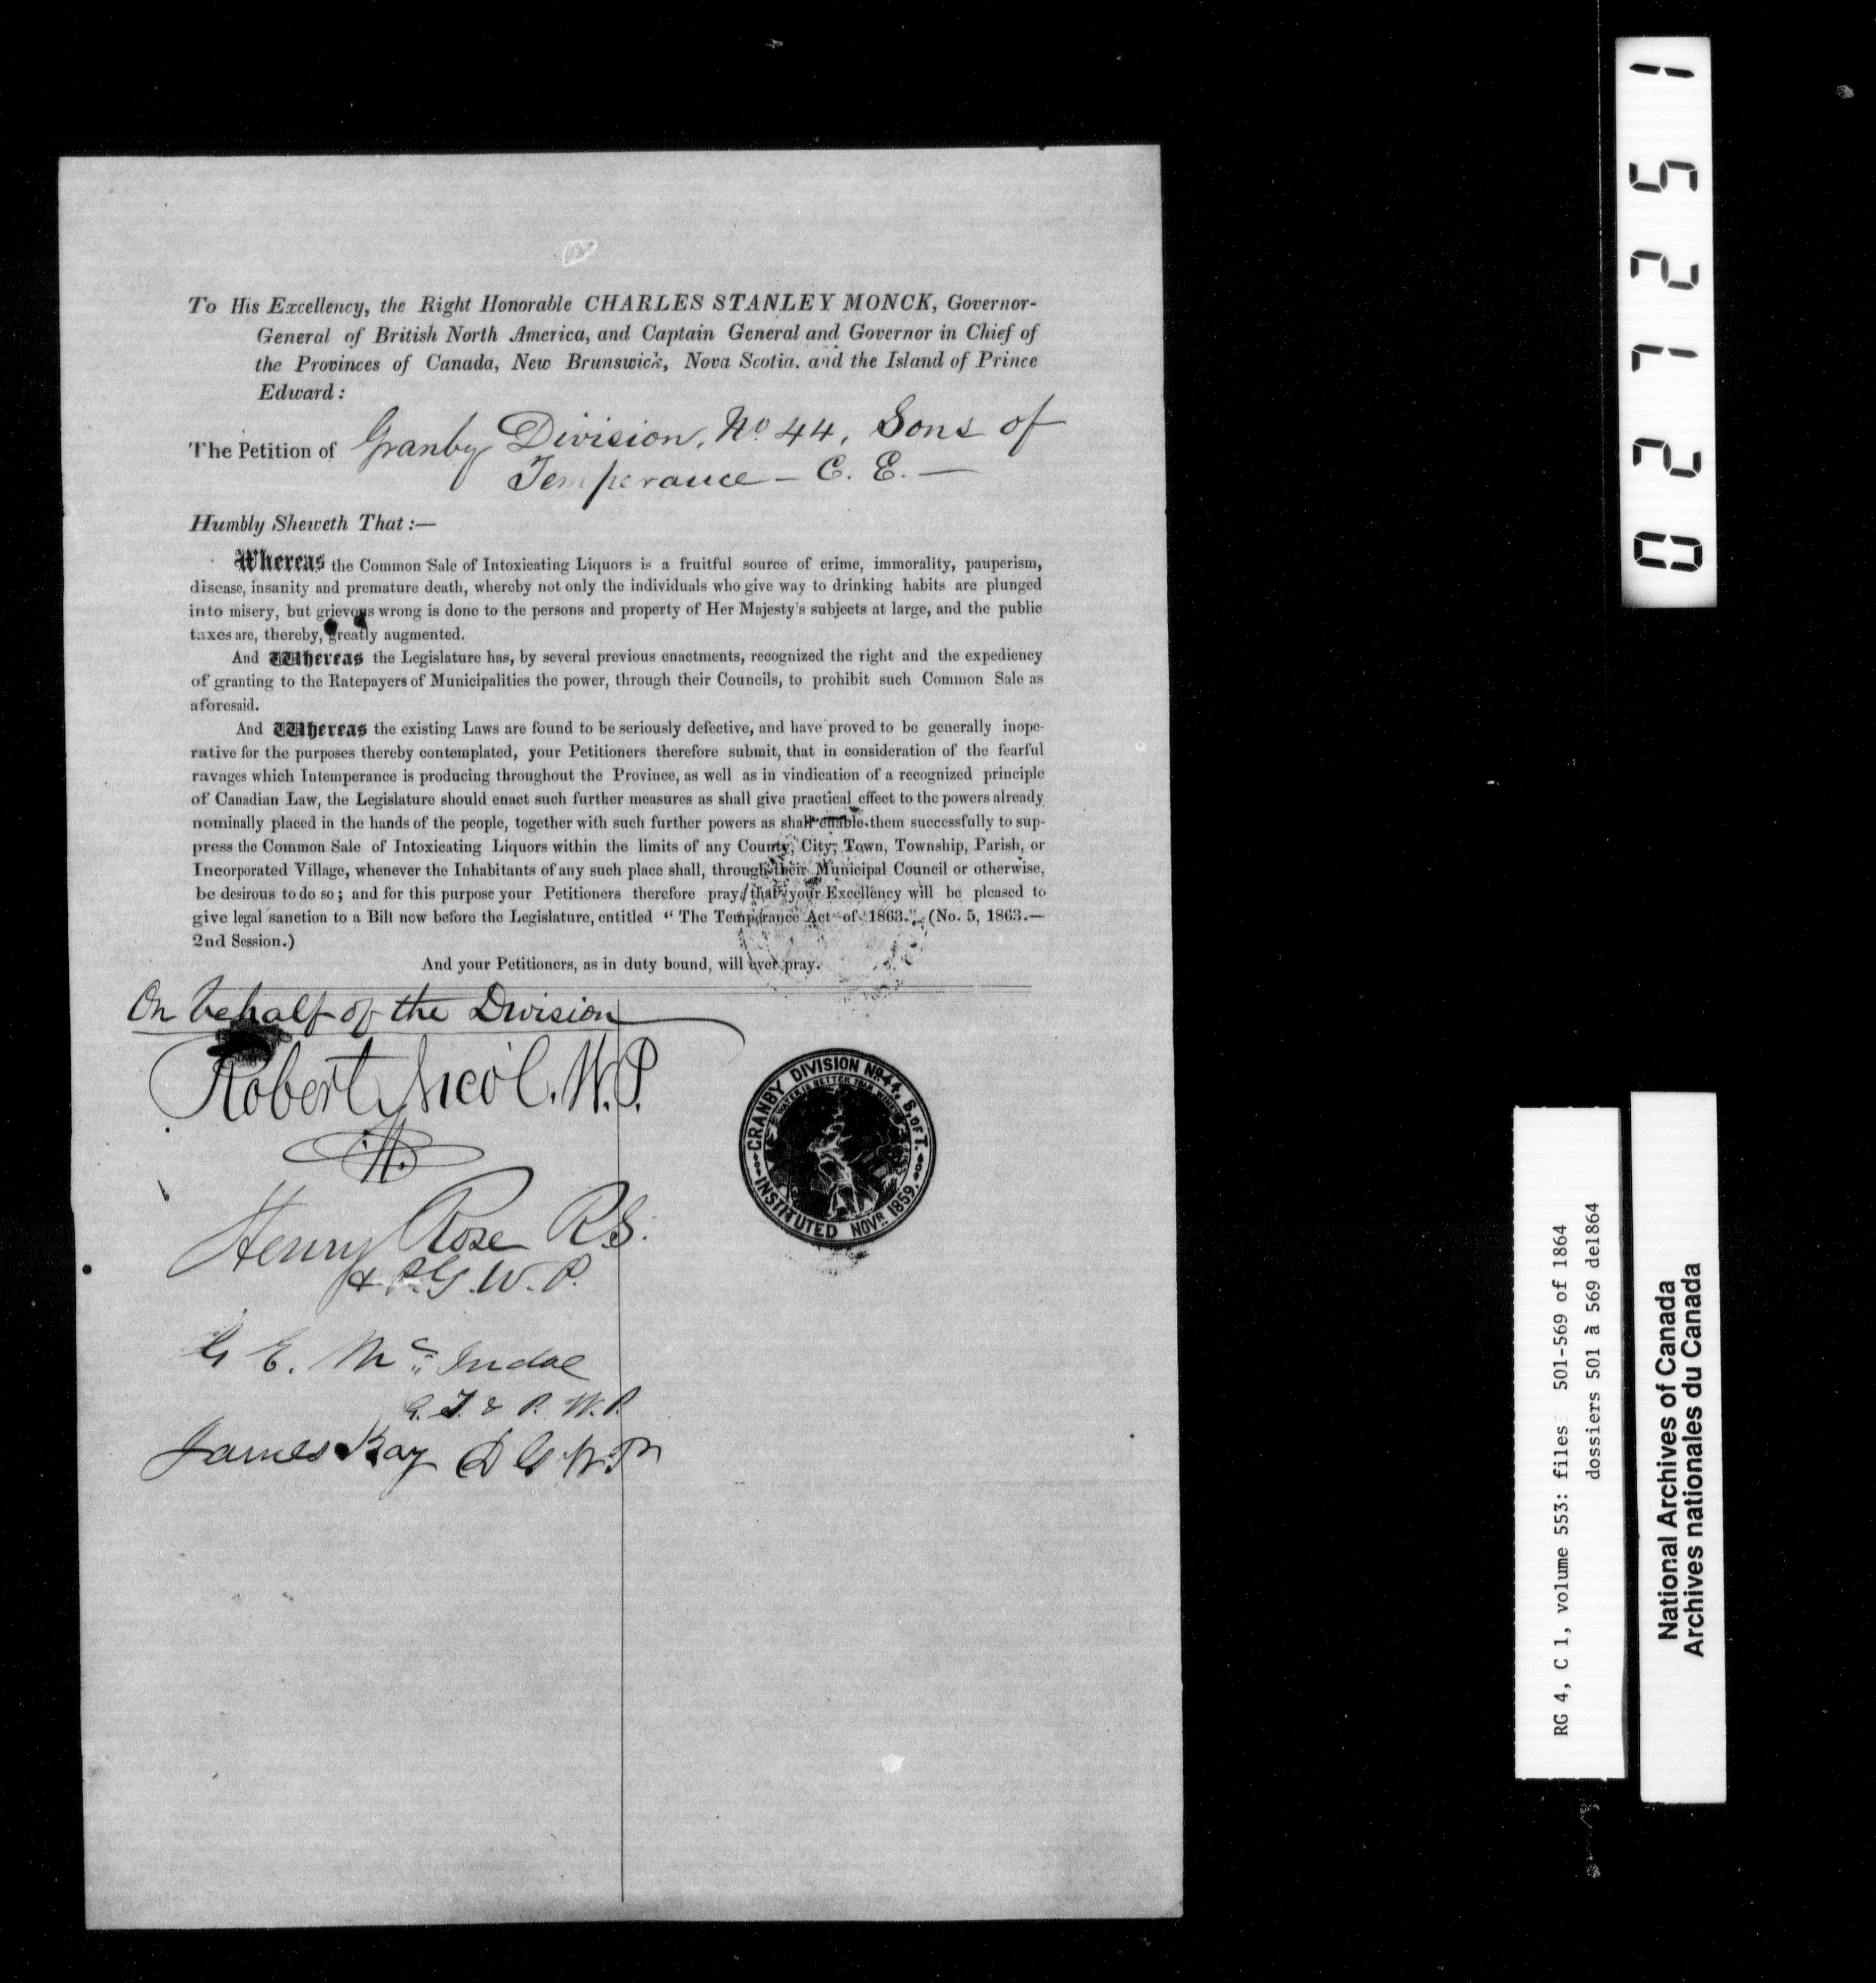 To His Excellency, the Right Honorable CHARLES STANLEY MONCK, Governor-
General of British North America, and Captain General and Governor in Chief of
the Provinces of Canada, New Brunswick, Nova Scotia. and the Island of Prince
Edward:
The Petition of Granby Division, No. 44, Sons of
Temperance - C. E. -
Humbly Sheweth That:—
Whereas the Common Sale of Intoxicating Liquors is a fruitful source of crime, immorality, pauperism,
disease, insanity and premature death, whereby not only the individuals who give way to drinking habits are plunged
into misery, but grievous wrong is done to the persons and property of Her Majesty's subjects at large, and the public
taxes are, thereby, greatly augmented.
And Whereas the Legislature has, by several previous enactments, recognized the right and the expediency
of granting to the Ratepayers of Municipalities the power, through their Councils, to prohibit such Common Sale as
aforesaid.
And Whereas the existing Laws are found to be seriously defective, and have proved to be generally inope-
rative for the purposes thereby contemplated, your Petitioners therefore submit, that in consideration of the fearful
ravages which Intemperance is producing throughout the Province, as well as in vindication of a recognized principle
of Canadian Law, the Legislature should enact such further measures as shall give practical effect to the powers already
nominally placed in the hands of the people, together with such further powers as shall enable them successfully to sup-
press the Common Sale of Intoxicating Liquors within the limits of any County, City, Town, Township, Parish, or
Incorporated Village, whenever the Inhabitants of any such place shall, through their Municipal Council or otherwise,
be desirous to do so; and for this purpose your Petitioners therefore pray, that your Excellency will be pleased to
give legal sanction to a Bill now before the Legislature, entitled "The Temperance Act of 1863." (No. 5, 1863.—
2nd Session.)
And your Petitioners, as in duty bound, will ever pray.
On behalf of the Division
Robert Nicol. W.P.
Henry Rose R.S.
& P.G.W.P.
G E. Mc Indoe
G. T. & P. W. P.
James Kay D G W P
GRANBY DIVISION No. 44, S. OF T.
WATER IS BETTER THAN WINE
INSTITUTED NOVR. 1859.
027251
RG 4, C 1, volume 553: files 501-569 of 1864
dossiers 501 à 569 de1864
National Archives of Canada
Archives nationales du Canada